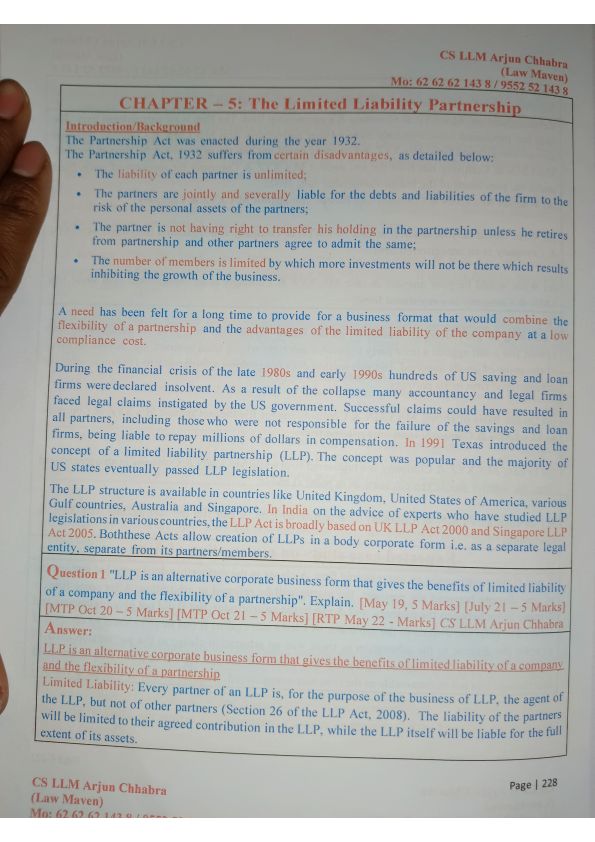 CS LLM Arjun Chhabra
(Law Maven)
Mo: 62 62 62 143 8 / 9552 52 143 8
CHAPTER – 5: The Limited Liability Partnership
Introduction/Background
The Partnership Act was enacted during the year 1932.
The Partnership Act, 1932 suffers from certain disadvantages, as detailed below:
• The liability of each partner is unlimited;
• The partners are jointly and severally liable for the debts and liabilities of the firm to the
risk of the personal assets of the partners;
• The partner is not having right to transfer his holding in the partnership unless he retires
from partnership and other partners agree to admit the same;
• The number of members is limited by which more investments will not be there which results
inhibiting the growth of the business.
A need has been felt for a long time to provide for a business format that would combine the
flexibility of a partnership and the advantages of the limited liability of the company at a low
compliance cost.
During the financial crisis of the late 1980s and early 1990s hundreds of US saving and loan
firms were declared insolvent. As a result of the collapse many accountancy and legal firms
faced legal claims instigated by the US government. Successful claims could have resulted in
all partners, including those who were not responsible for the failure of the savings and loan
firms, being liable to repay millions of dollars in compensation. In 1991 Texas introduced the
concept of a limited liability partnership (LLP). The concept was popular and the majority of
US states eventually passed LLP legislation.
The LLP structure is available in countries like United Kingdom, United States of America, various
Gulf countries, Australia and Singapore. In India on the advice of experts who have studied LLP
legislations in various countries, the LLP Act is broadly based on UK LLP Act 2000 and Singapore LLP
Act 2005. Boththese Acts allow creation of LLPs in a body corporate form i.e. as a separate legal
entity, separate from its partners/members.
Question 1 "LLP is an alternative corporate business form that gives the benefits of limited liability
of a company and the flexibility of a partnership". Explain. [May 19, 5 Marks] [July 21 – 5 Marks]
[MTP Oct 20 – 5 Marks] [MTP Oct 21 – 5 Marks] [RTP May 22 - Marks] CS LLM Arjun Chhabra
Answer:
LLP is an alternative corporate business form that gives the benefits of limited liability of a company
and the flexibility of a partnership
Limited Liability: Every partner of an LLP is, for the purpose of the business of LLP, the agent of
the LLP, but not of other partners (Section 26 of the LLP Act, 2008). The liability of the partners
will be limited to their agreed contribution in the LLP, while the LLP itself will be liable for the full
extent of its assets.
Page | 228
CS LLM Arjun Chhabra
(Law Maven)
Mo: 62 62 62 143 8